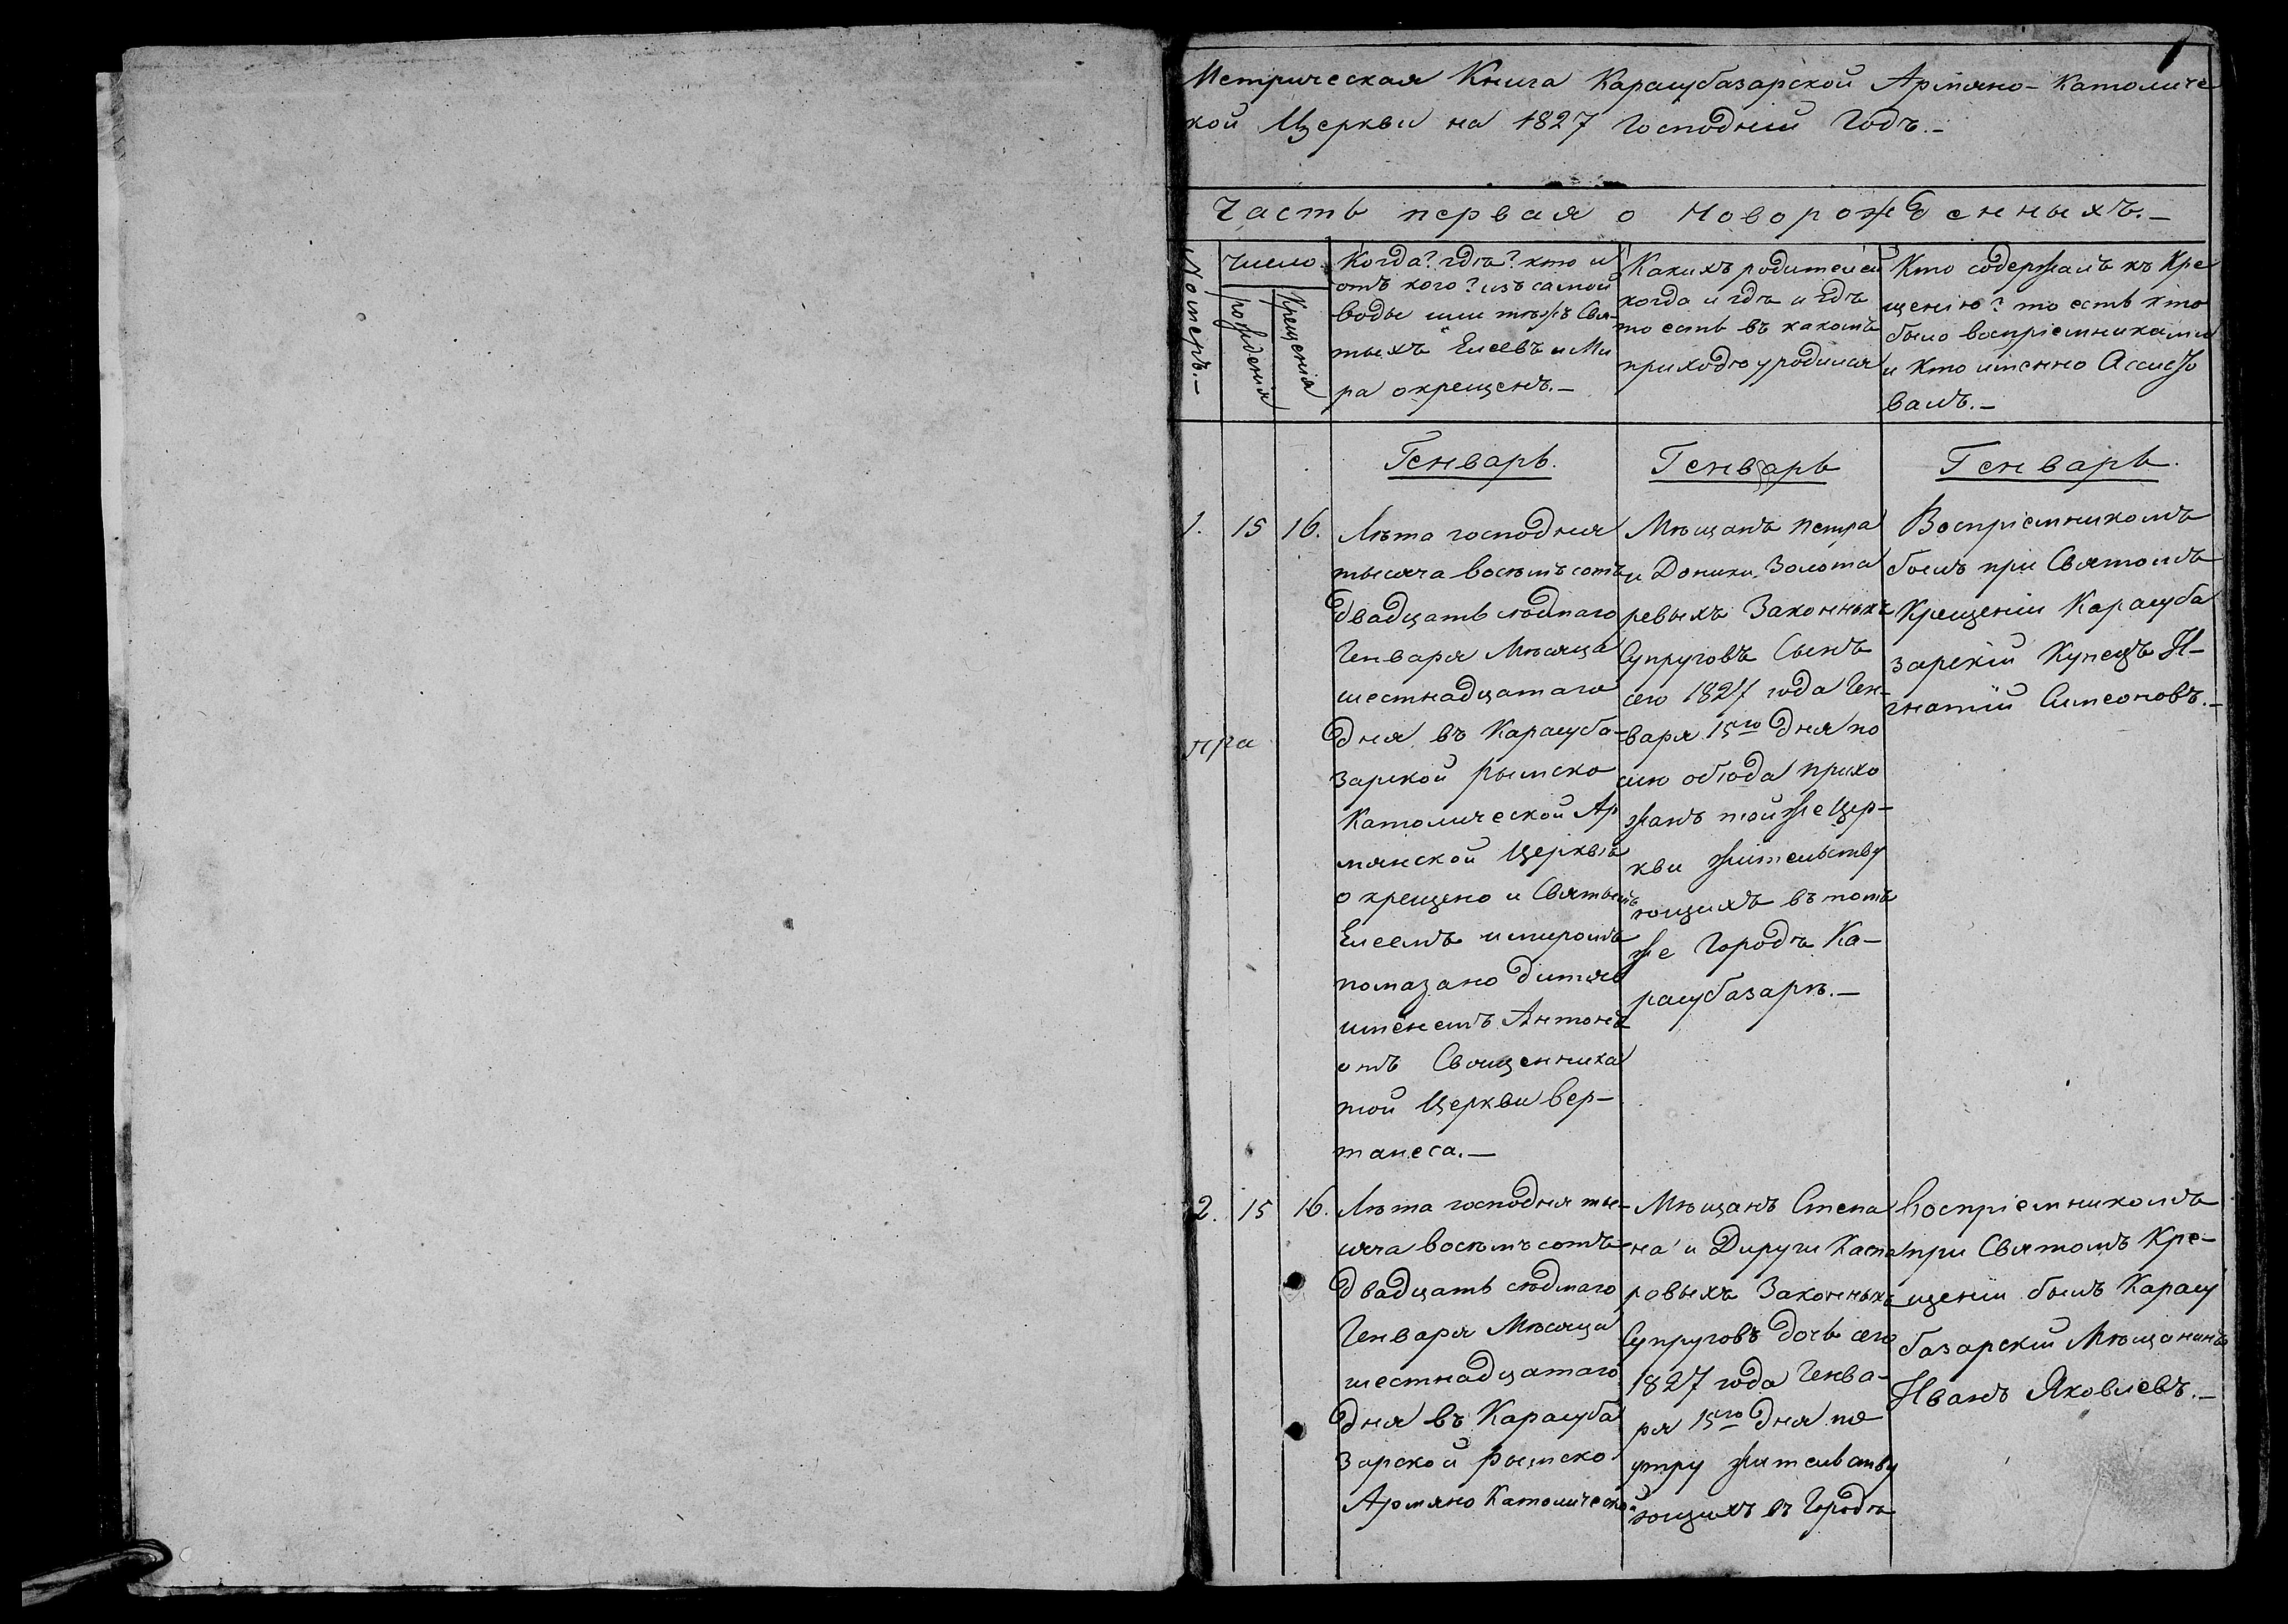 1
Метрическая Книга Карасубазарской Армяно-Католиче
кой Церкви на 1827 Господній Годъ.-
Часть первая о Новорожденныхъ.-
Номеръ.-
число
рожденія
Крещенія
Когда? гдѣ? кто и
отъ кого? изъ самой
воды или тѣхъ Свя-
тыхъ Елеевъ и Ми
ра окрещенъ.-
Какихъ родителей
когда и гдѣ и гдѣ
то есть въ какомъ
приходѣ уродился
Кто содержалъ къ Кре
щенію? то есть кто
было воспріемниками
и Кто именно Ассисто
валъ.-
Генварь.
1. 15 16.
Лѣта господня
тысяча восемъсотъ
двадцать седмаго
Генваря Мѣсяца
шестнадцатаго
дня въ Карасуба-
зарской рымско
Католической Ар
мянской Церквѣ
окрещено и Святымъ
Елеемъ и миромъ
помазано дитя
именемъ Антонъ
отъ Священника
той Церкви Вер-
танеса.-
Генварь
Мѣщанъ Петра
и Доники Золота
ревыхъ Законныхъ
Супруговъ Сынъ
сего 1827 года Ген-
варя 15го дня по
слѣ обѣда прихо
жанъ той же Цер-
кви жительству
ющихъ въ томъ
же Городѣ Ка-
расубазарѣ.-
Генварь.
Воспріемникомъ
былъ при Святомъ
Крещеніи Карасуба
зарскій Купецъ И-
гнатій Симеоновъ.-
пра
2. 15 16.
Лѣта господня ты-
сяча восемъсотъ
двадцать седмаго
Генваря Мѣсяца
шестнадцатаго
дня въ Карасуба
зарской рымско
Армяно Католической
Мѣщанъ Степа
на и Дируги Каспа
ровыхъ Законныхъ
Супруговъ дочь сего
1827 года Генва-
ря 15го дня по
утру жительству
ющихъ въ Городѣ
Воспріемникомъ
при Святомъ Кре-
щеніи былъ Карасу
базарскій Мѣщанинъ
Иванъ Яковлевъ.-